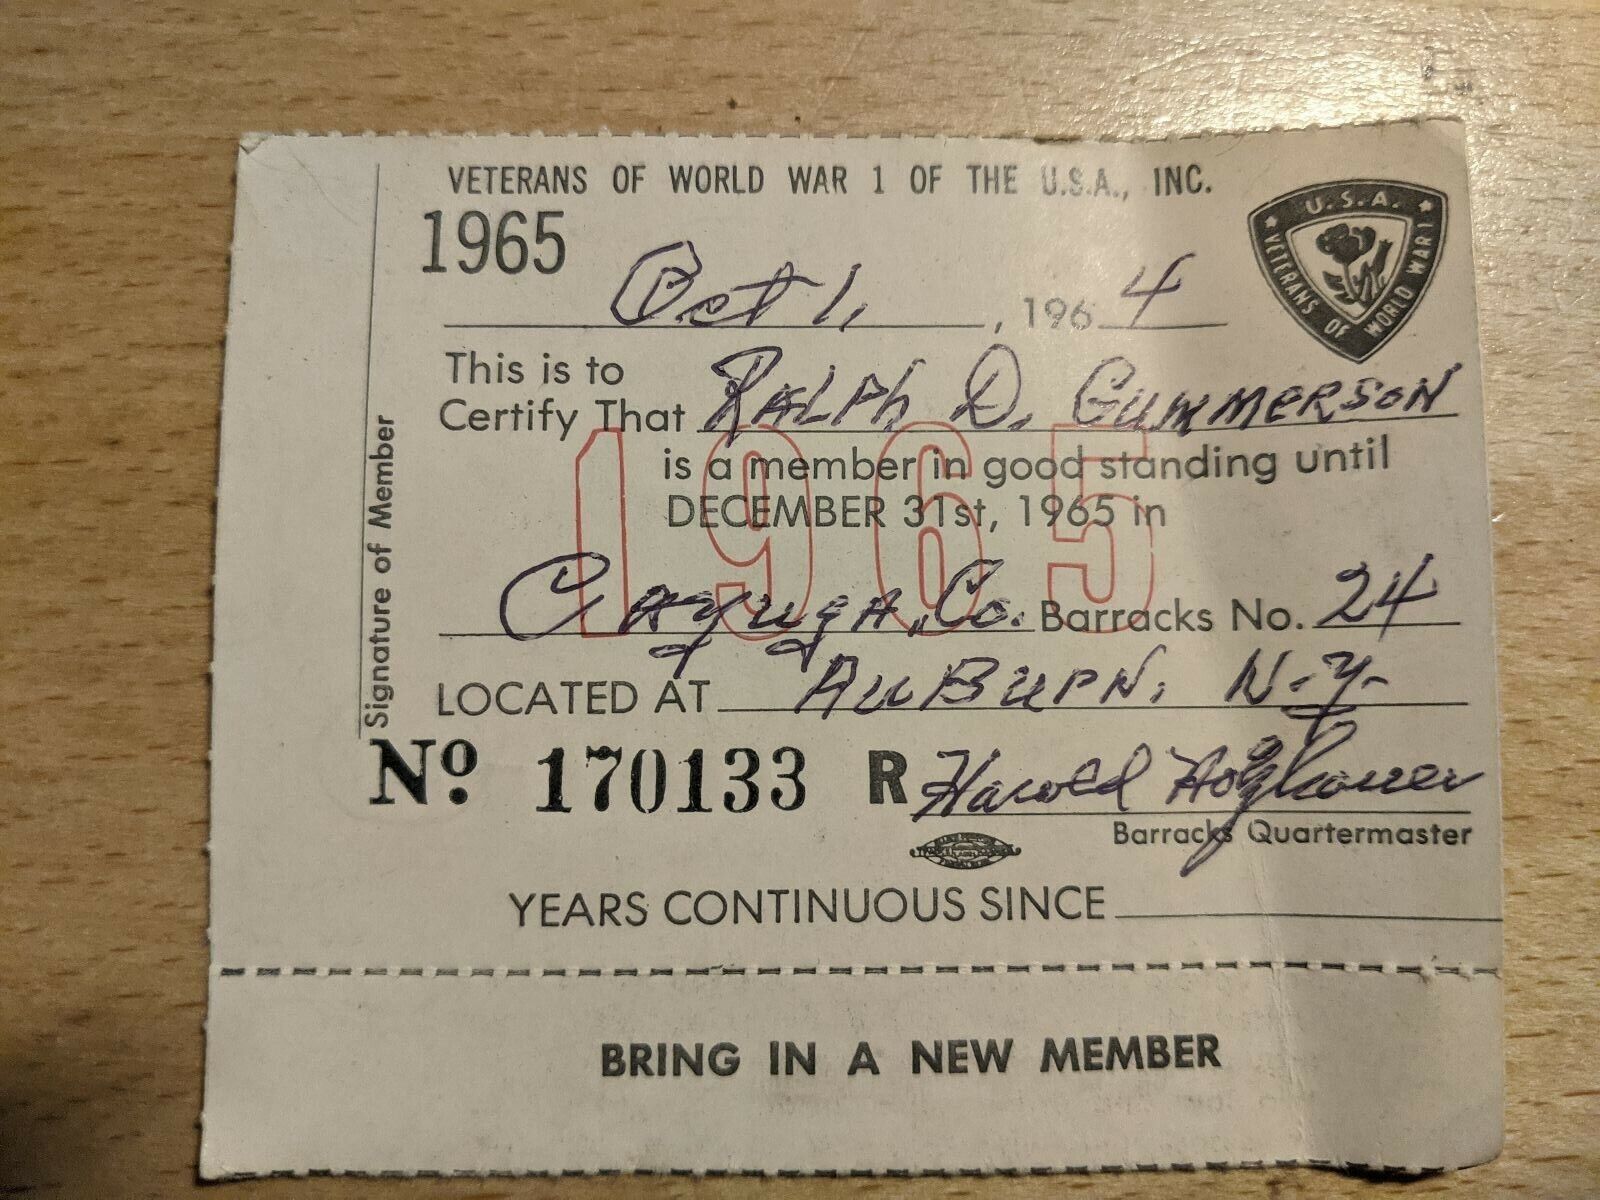 VETERANS OF WORLD WAR 1 OF THE U.S.A., INC.
1965
U.S.A.
VETERANS OF WORLD WAR I
Oct 1, , 1964
This is to
Certify That Ralph D. Gummerson
1965
is a member in good standing until
DECEMBER 31st, 1965 in
Cayuga, Co. Barracks No. 24
LOCATED AT Auburn, N.Y.
Signature of Member
No. 170133 R Harold
Barracks Quartermaster
YEARS CONTINUOUS SINCE
BRING IN A NEW MEMBER